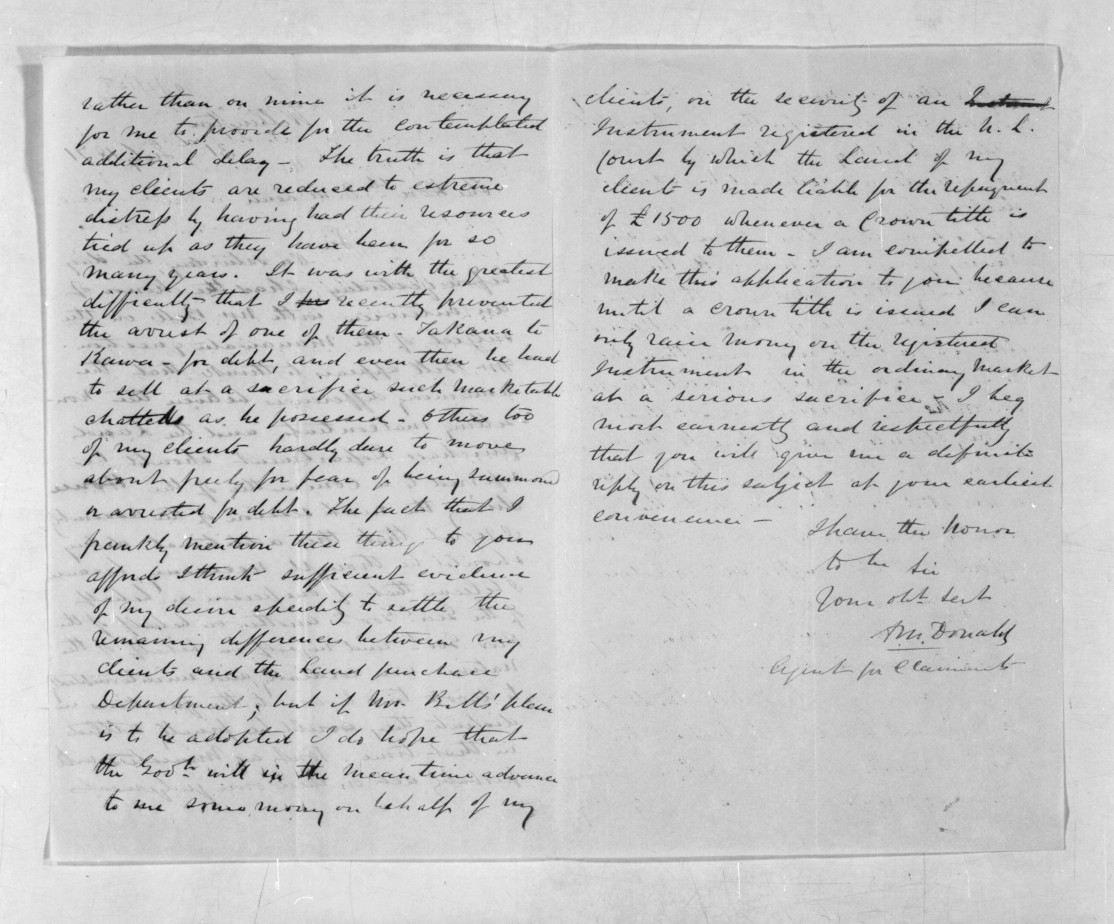 rather than on mine it is necessary
for me to provide for the contemplated
additional delay - The truth is that
my clients are reduced to extreme
distress by having had their resources
tied up as they have been for so
many years. It was with the greatest
difficulty that I recently prevented
the arrest of one of them - Takana te
Kawa - for debt, and even then he had
to sell at a sacrifice such marketable
chattells as he possessed - Others too
of my clients hardly dare to move
about freely for fear of being summoned
or arrested for debt. The fact that I
frankly mention these things to you
affords I think sufficient evidence
of my desire speedily to settle the
remaining differences between my
clients and the Land purchase
Department; but if Mr. Betts' plan
is to be adopted I do hope that
the Govt. will in the meantime advance
to me some money on behalf of my
clients, on the security of an
Instrument registered in the N. L.
Court by which the Land of my
clients is made liable for the repayment
of £1500 whenever a Crown title is
issued to them - I am compelled to
make this application to you because
until a crown title is issued I can
only raise money on the registered
Instrument in the ordinary market
at a serious sacrifice - I beg
most earnestly and respectfully
that you will give me a definite
reply on this subject at your earliest
convenience -
I have the honor
to be Sir
Your obt. Sert
A McDonald
Agent for Claimants